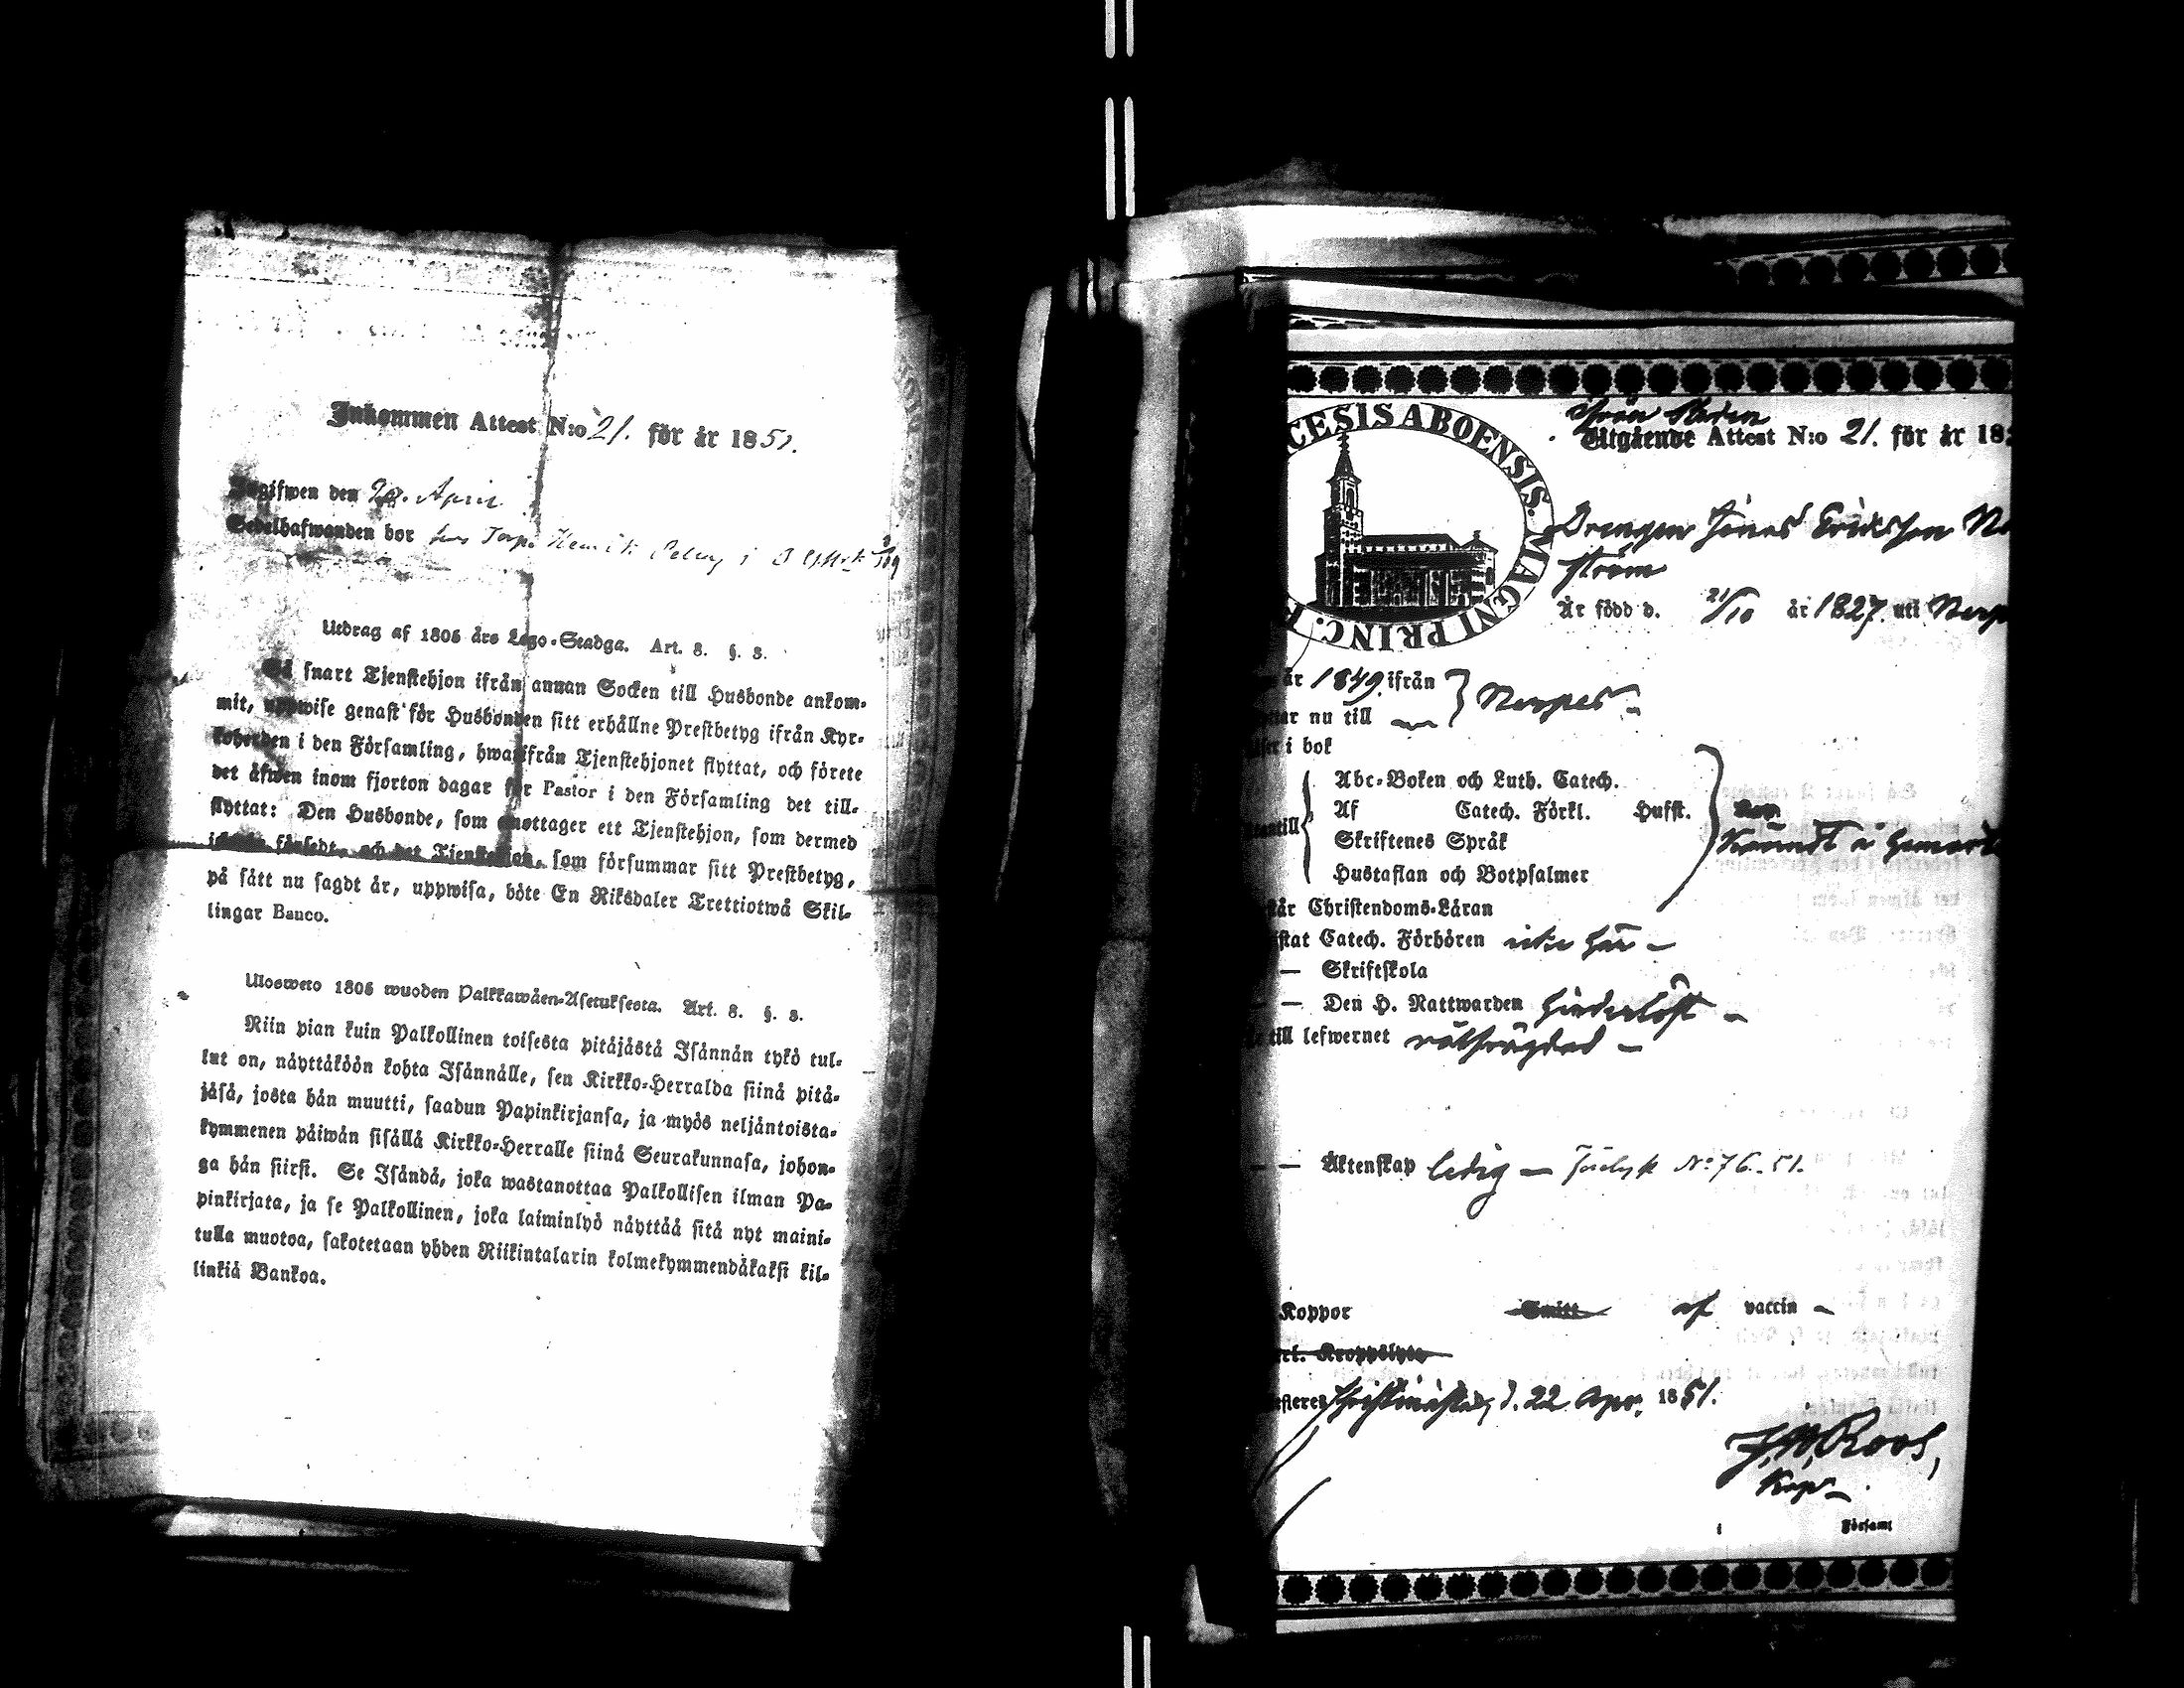 Inkommen Attest N:o 21. för år 1851.
Ingifwen den April
Sedelhafwanden bor hos Torp. Henrik i
Utdrag af 1805 års Lego-Stadga. Art. 8. §. 3.
Så snart Tjenstehjon ifrån annan Socken till Husbonde ankom-
mit, uppwise genast för Husbonden sitt erhållne Prestbetyg ifrån Kyr-
koherden i den Församling, hwarifrån Tjenstehjonet flyttat, och förete
det äfwen inom fjorton dagar för Pastor i den Församling det till-
flyttat: Den Husbonde, som emottager ett Tjenstehjon, som dermed
försedt, och det Tjenstehjon, som försummar sitt Prestbetyg,
på sätt nu sagdt är, uppwisa, böte En Riksdaler Trettiotwå Skil-
lingar Banco.
Ulosweto 1805 wuoden Palkkawäen-Asetuksesta. Art. 8. §. 3.
Niin pian kuin Palkollinen toisesta pitäjästä Isännän tykö tul-
lut on, näyttäköön kohta Isännälle, sen Kirkko-Herralda siinä pitä-
jäsä, josta hän muutti, saadun Papinkirjansa, ja myös neljäntoista-
kymmenen päiwän sisällä Kirkko-Herralle siinä Seurakunnasa, johon-
ga hän siirsi. Se Isändä, joka wastanottaa Palkollisen ilman Pa-
pinkirjata, ja se Palkollinen, joka laiminlyö näyttää sitä nyt maini-
tulla muotoa, sakotetaan yhden Riikintalarin kolmekymmendäkaksi kil-
linkiä Bankoa.
CESIS ABOENSIS. MAGNI PRINC. F
från Staden
Utgående Attest N:o 21. för år 18
Drengen Jonas Ericsson
ström
Är född d. 21/10 år 1827. uti
år 1849. ifrån
nu till
Nerpes
i bok
Abc-Boken och Luth. Catech.
Af Catech. Förkl. Hufst.
Skriftenes Språk
Hustaflan och Botpsalmer
Christendoms-Läran
Catech. Förhören icke här
— Skriftskola
— Den H. Nattwarden hinderlöst
till lefwernet wälfrägdad
— — Äktenskap ledig — No 76. 51.
Koppor Smitt af vaccin
Kroppslyte
Christinæstad, d. 22 Apr. 1851.
Roos,
Kap.
Församl